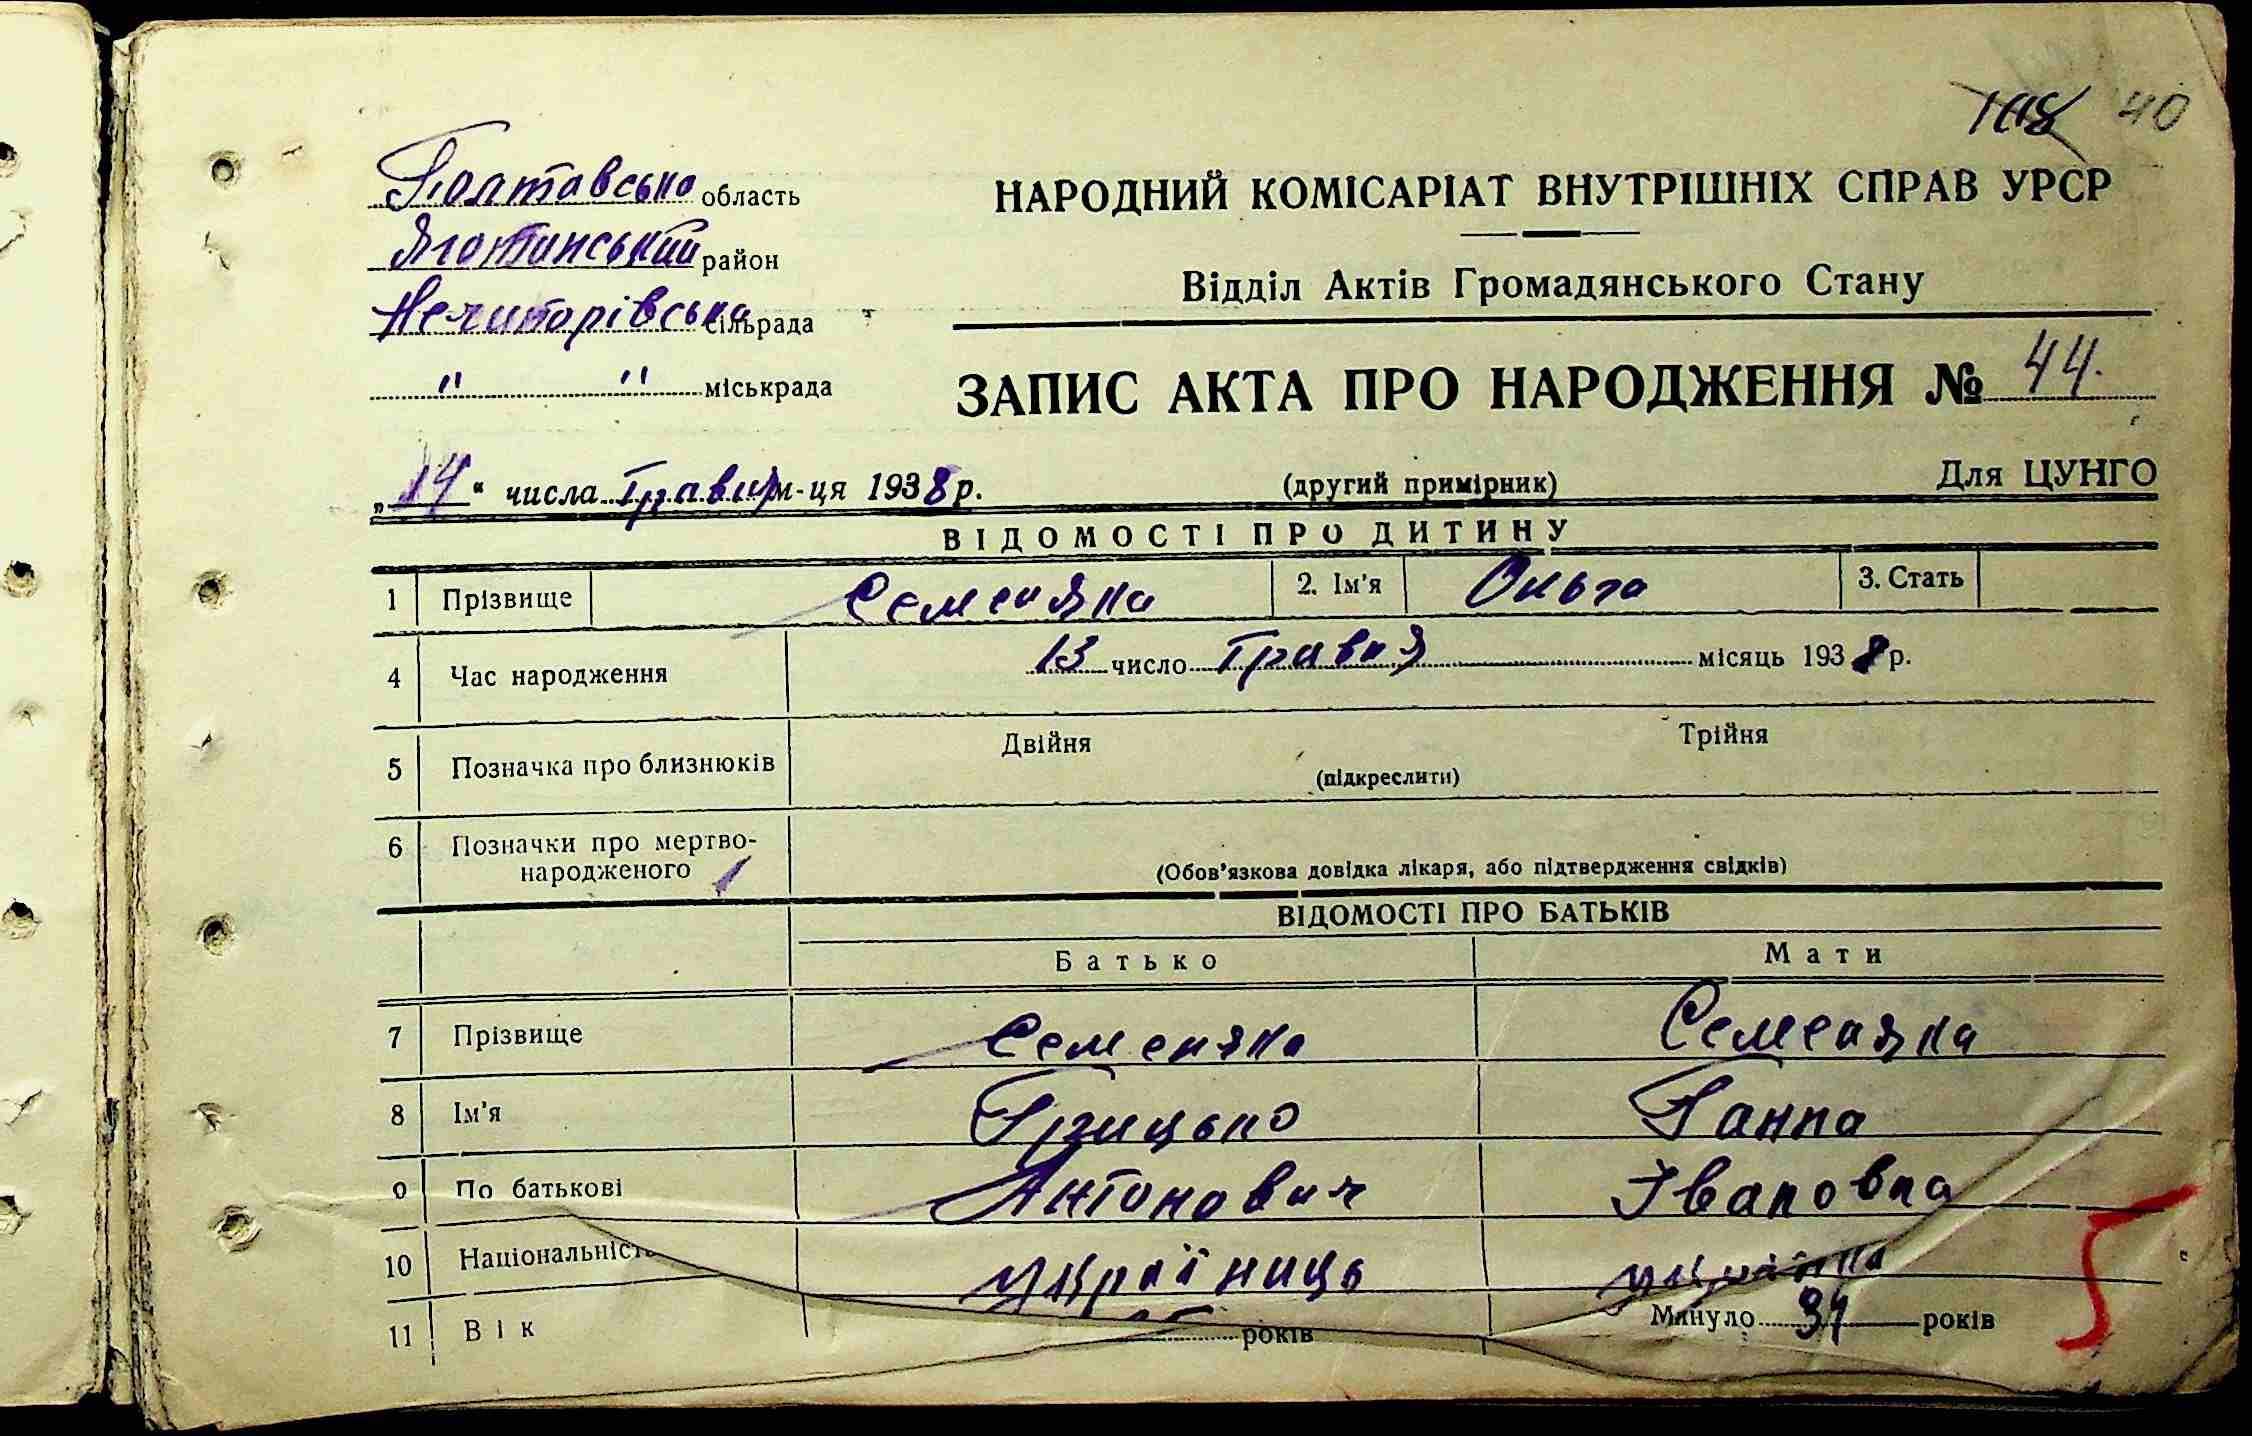 108 40
Полтавська область
Яготинський район
Нечипорівська сільрада
" " міськрада
НАРОДНИЙ КОМІСАРІАТ ВНУТРІШНІХ СПРАВ УРСР
Відділ Актів Громадянського Стану
ЗАПИС АКТА ПРО НАРОДЖЕННЯ № 44.
„14“ числа Травня м-ця 1938 р. (другий примірник) Для ЦУНГО
ВІДОМОСТІ ПРО ДИТИНУ
1 Прізвище Семеняка 2. Ім'я Ольга 3. Стать
4 Час народження 13 число Травня місяць 1938 р.
5 Позначка про близнюків Двійня Трійня
(підкреслити)
6 Позначки про мертво-
народженого (Обов'язкова довідка лікаря, або підтвердження свідків)
ВІДОМОСТІ ПРО БАТЬКІВ
Батько Мати
7 Прізвище Семеняка Семеняка
8 Ім'я Грицько Ганна
9 По батькові Антонович Івановна
10 Національність украіниць украінка
11 Вік років Минуло 34 років